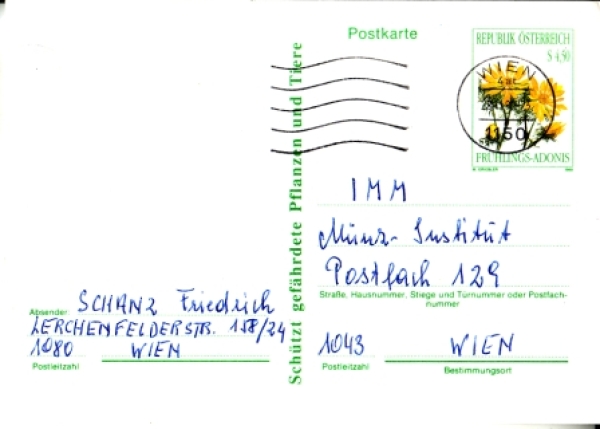 Postkarte
REPUBLIK ÖSTERREICH
S 4,50
WIEN
1150
FRÜHLINGS-ADONIS
Schützt gefährdete Pflanzen und Tiere
IMM
Münz-Institut
Postfach 129
Straße, Hausnummer, Stiege und Türnummer oder Postfach-
nummer
1043 WIEN
Postleitzahl Bestimmungsort
Absender SCHANZ Friedrich
LERCHENFELDERSTR. 158/24
1080 WIEN
Postleitzahl